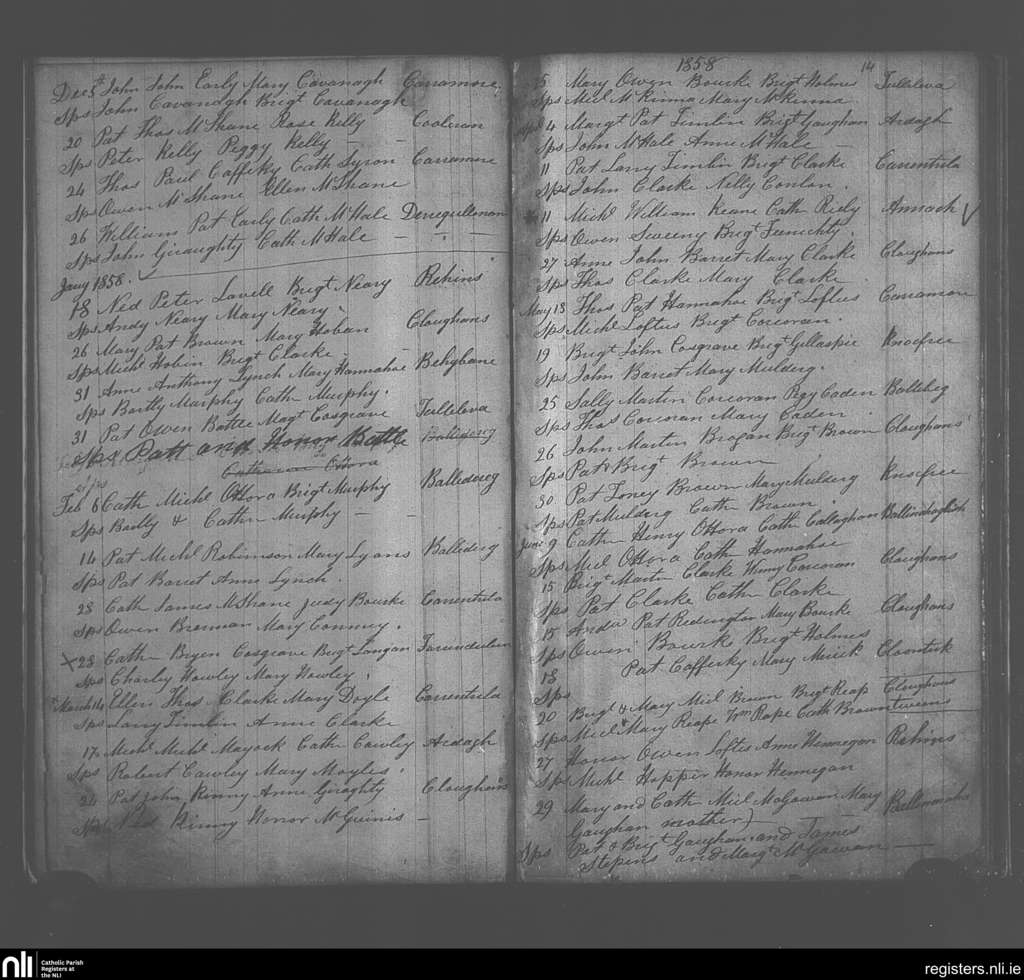 Decr John John Early Mary Cavanagh Carramore
Sps John Cavanagh Brigt Cavanagh
20 Pat Thos McShane Rose Kelly Cooleran
Sps Peter Kelly Peggy Kelly
24 Thos Paul Cafferky Cath Syron Carramore
Sps Owen McShane Ellen McShane
26 William Pat Early Cath McHale
Sps John Giraughty Cath McHale
Jany 1858.
18 Ned Peter Lavell Brigt Neary Rehins
Sps Andy Neary Mary Neary
26 Mary Pat Brown Mary Hoban Cloughans
Sps Michl Hobin Brigt Clarke
31 Anne Anthony Lynch Mary Hannahoe Behybane
Sps Bartly Murphy Cath Murphy.
31 Pat Owen Battle Magt Cosgrave Tulleleva
Sps Patt and Honor Battle Ballederg
Catherine Ottora
Feb 6 Cath Michl Ottora Brigt Murphy Ballederg
Sps Bartly & Cathn Murphy
14 Pat Michl Robinson Mary Lyons Ballederg
Sps Pat Barret Anne Lynch.
28 Cath James McShane Judy Bourke Carrentula
Sps Owen Brennan Mary Conmey.
X 28 Cathn Bryen Cosgrave Brigt Langan
Sps Charley Howley Mary Howley.
March 14 Ellen Thos Clarke Mary Doyle Carrentula
Sps Larry Timlin Anne Clarke
17 Michl Michl Mayock Cath Cawley Ardagh
Sps Robert Cawley Mary Moyles.
24 Pat John Kinny Anne Giraghty Cloughans
Sps Ned Kinny Honor McGuinis
1858 14
15 Mary Owen Bourke Brigt Holmes Tulleleva
Sps Micl McKinna Mary McKenna
Apl 4 Margt Pat Timlin Brigt Gaughan Ardagh
Sps John McHale Anne McHale
11 Pat Larry Timlin Brigt Clarke Carrentula
Sps John Clarke Nelly Conlan.
11 Michl William Keane Cath Riely Annach
Sps Owen Sweeny Brigt
27 Anne John Barret Mary Clarke Cloughans
Sps Thos Clarke Mary Clarke
May 13 Thos Pat Hannahoe Brigt Loftus Carramore
Sps Michl Loftus Brigt Corcoran.
19 Brigt John Cosgrave Brigt Gillaspie Knocfree
Sps John Barret Mary Mulderg.
25 Sally Martin Corcoran Pegy Caden Balleheg
Sps Thos Corcoran Mary Caden
26 John Martin Brogan Brigt Brown Cloughans
Sps Pat & Brigt Brown
30 Pat Toney Brown Mary Mulderg Knocfree
Sps Pat Mulderg Cath Brown
June 9 Cathn Henry Ottora Cath Callaghan
Sps Micl Ottora Cath Hannahoe
15 Brigt Martin Clarke Winny Corcoran Cloughans
Sps Pat Clarke Cathn Clarke
15 Andw Pat Redington Mary Bourke Cloughans
Sps Owen Bourke Brigt Holmes
18 Pat Cafferky Mary Mirick Cloontick
Sps
20 Brigt & Mary Micl Brown Brigt Reap Cloughans
Sps Micl & Mary Reape Wm Rape Cath Brown tweens
27 Honor Owen Loftus Anne Hennegan Rehins
Sps Michl Hopper Honor Hennegan
29 Mary and Cath Micl McGowan Mary
Gaughan mother)
Sps Pat & Brigt Gaughan and James
Stepens and Margt McGawan
nli Catholic Parish
Registers at
the NLI
registers.nli.ie